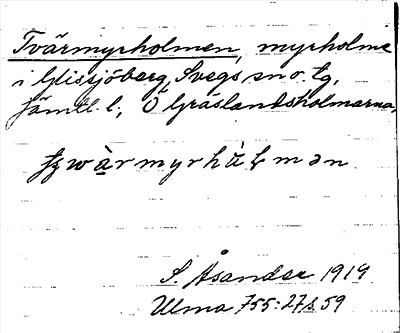 Tvärmyrholmen, myrholme
i Glissjöberg, Svegs sn o. tg,
Jämtl. l., Ö Gräslandsholmarna.
S. Åsander 1919
Ulma 755:27 s. 59